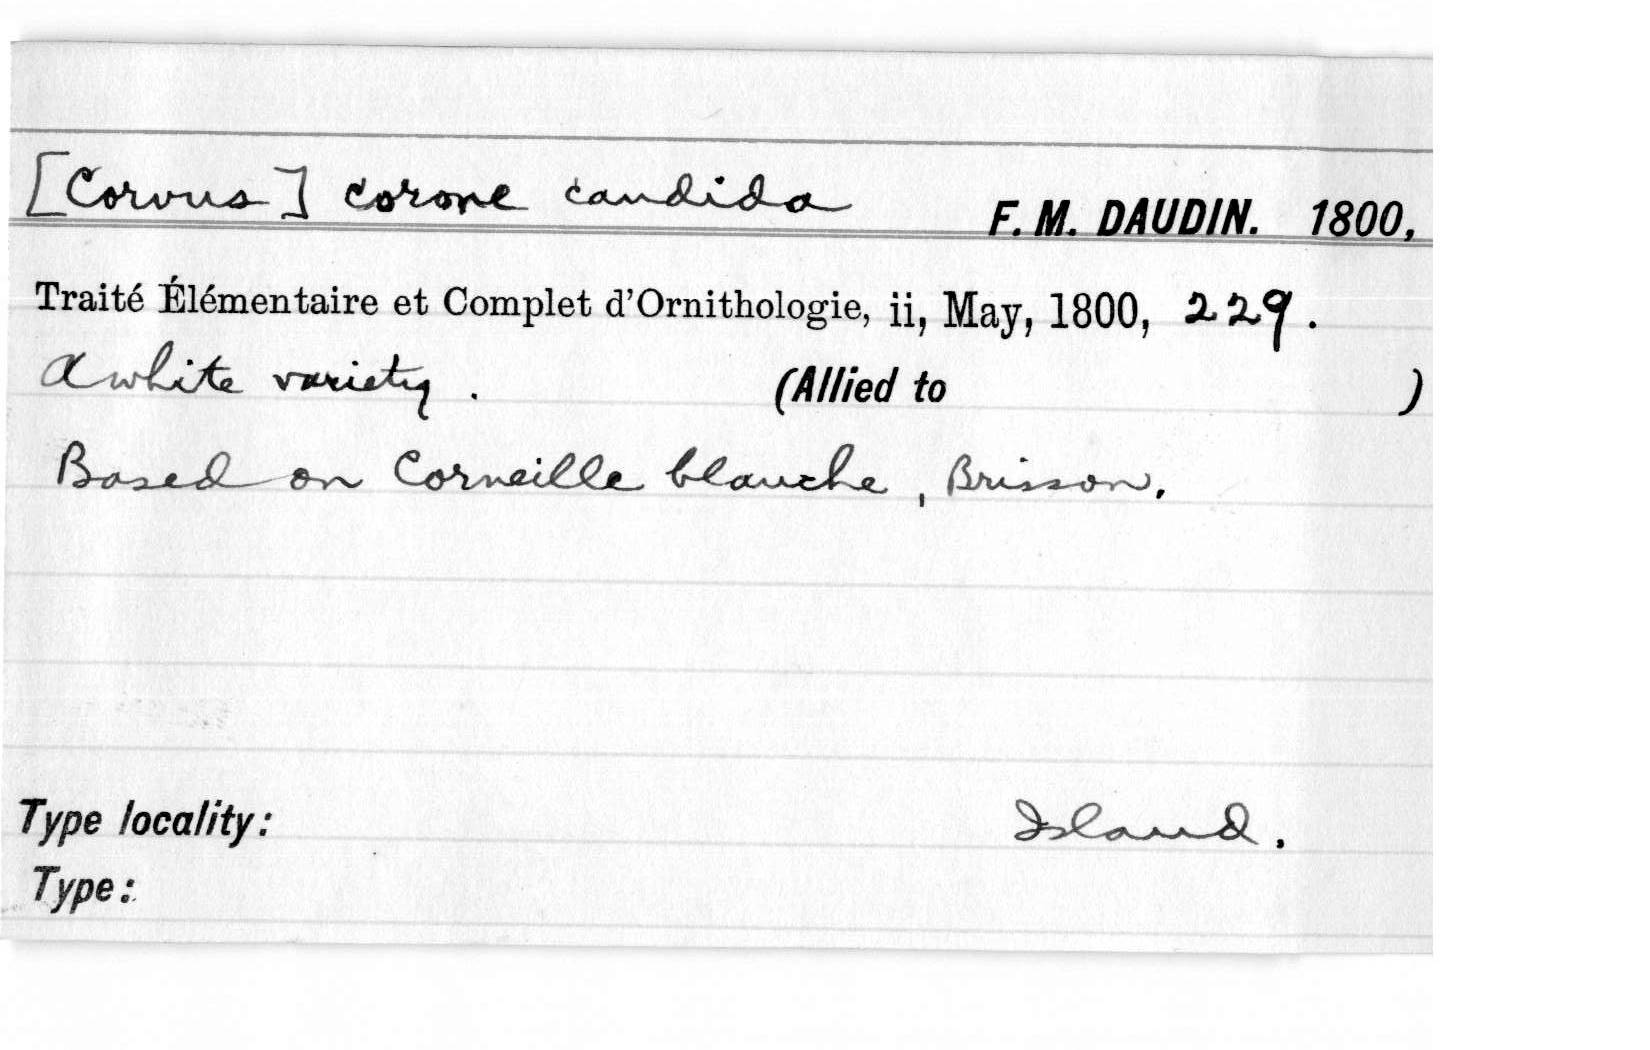 [Corvus] corone candida F. M. DAUDIN. 1800,
Traité Élémentaire et Complet d'Ornithologie, ii, May, 1800, 229.
A white variety. (Allied to )
Based on Corneille blanche, Brisson.
Type locality: Island.
Type: